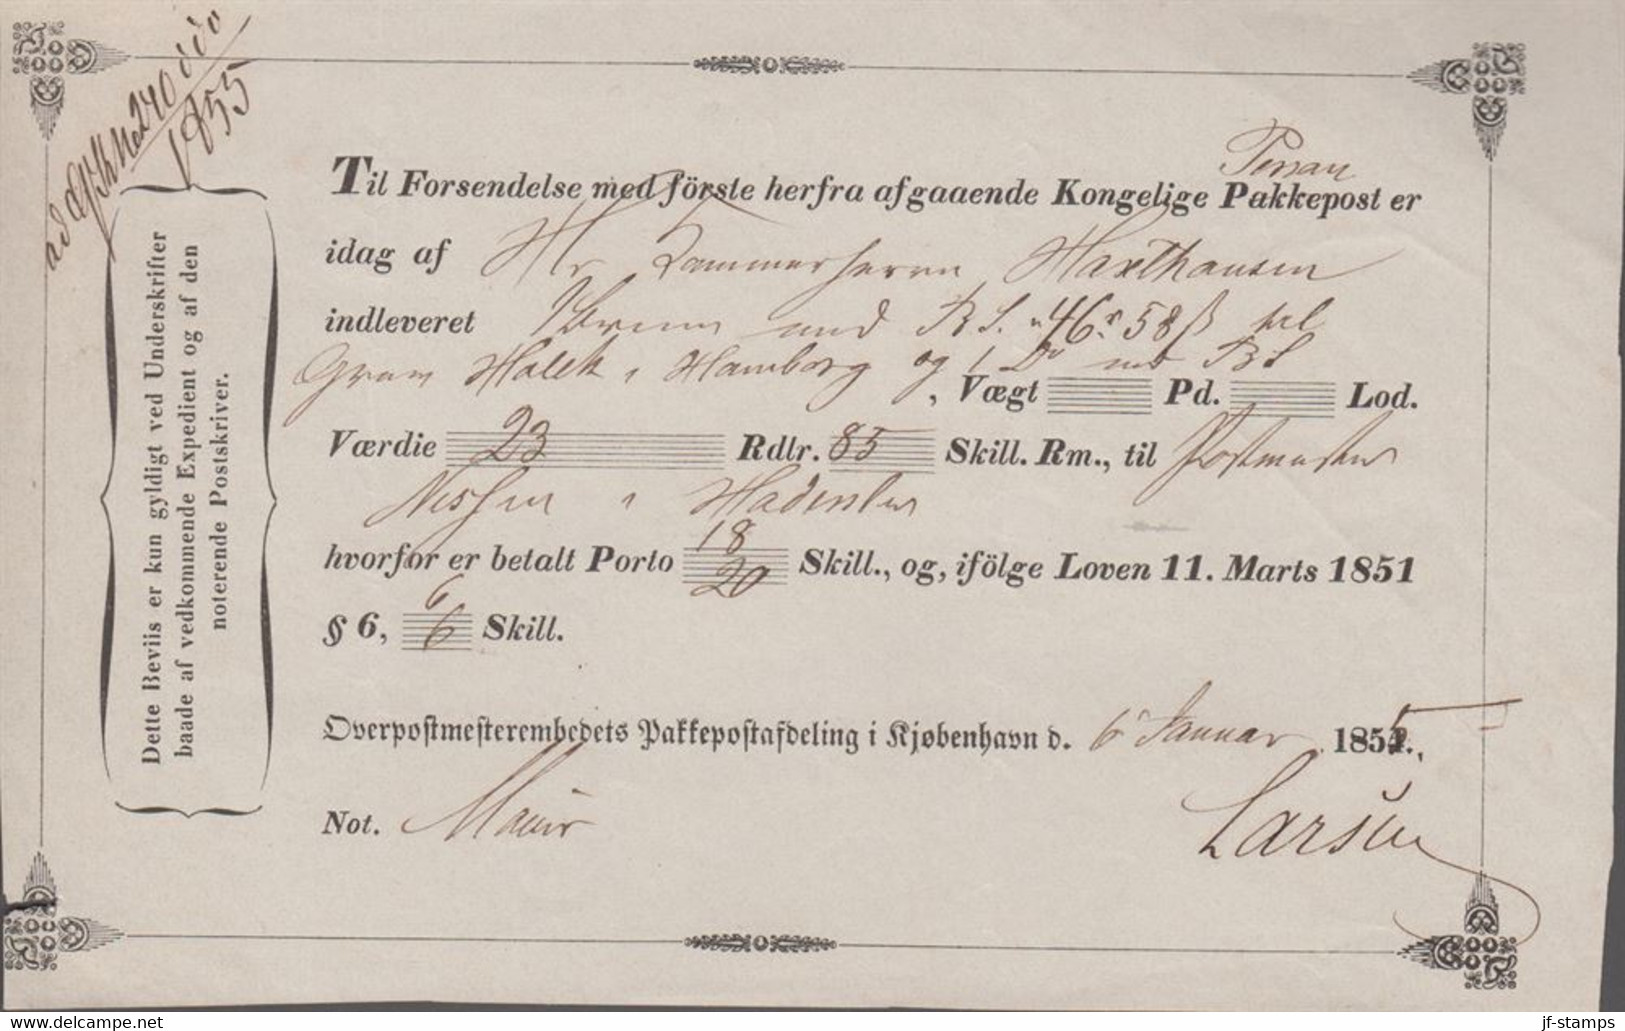 1855
Til Forsendelse med förste herfra afgaaende Kongelige Pakkepost er
idag af Hr Kammerherre Haxthausen
indleveret 1 Brev med B. S. 46 r 58 ß til
Gram Holck i Hamborg og 1 Do med B S
, Vægt Pd. Lod.
Værdie 23 Rdlr. 85 Skill. Rm., til Postmester
Nissen i Haderslev
18
hvorfor er betalt Porto 20 Skill., og, ifölge Loven 11. Marts 1851
6
§ 6, 6 Skill.
Overpostmesterembedets Pakkepostafdeling i Kjøbenhavn d. 6 Januar 1855.
Not. Larsen
Dette Beviis er kun gyldigt ved Underskrifter
baade af vedkommende Expedient og af den
noterende Postskriver.
jf-stamps